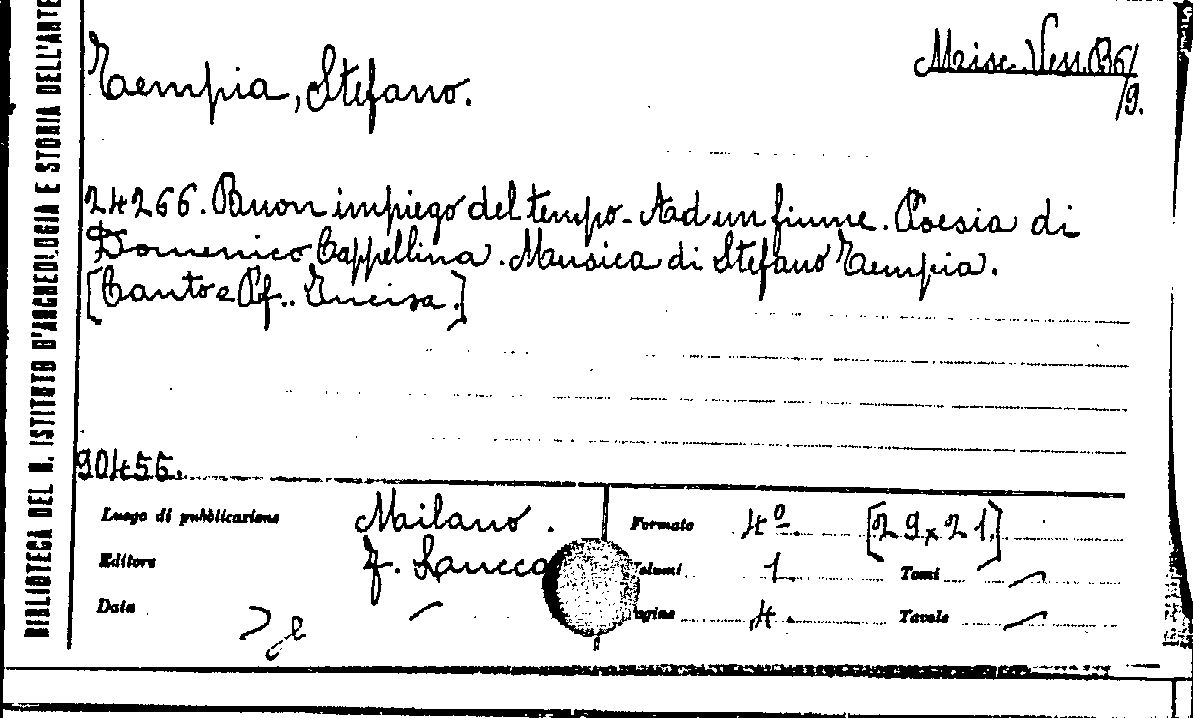 BIBLIOTECA DEL R. ISTITUTO D'ARCHEOLOGIA E STORIA DELL'ARTE
Tempia, Stefano.
Misc. Vess. B6/
/9.
24266. Buon impiego del tempo - Ad un fiume. Poesia di
Domenico Cappellina. Musica di Stefano Tempia.
[Canto e Pf.. Incisa.]
90456.
Luogo di pubblicazione Milano.
Editore F. Lucca
Data
Formato 4º. [29x21]
Volumi 1 Tomi
Pagine 4. Tavole